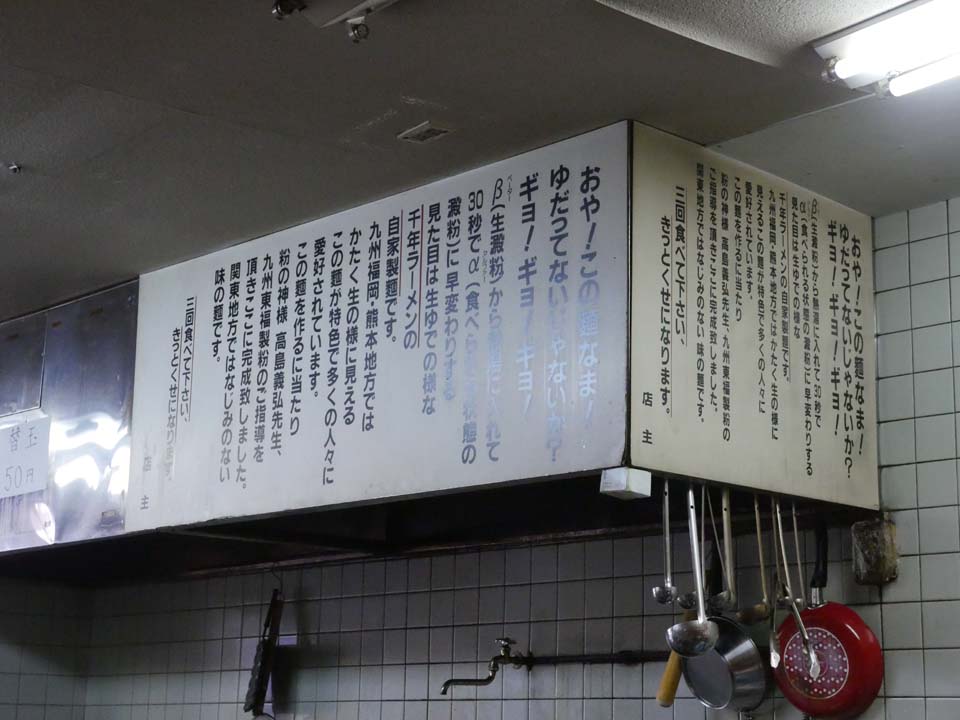 おや!この麺なま!
ゆだってないじゃないか?
ギョ!ギョ!ギョ!
ベーター
β(生澱粉)から熱湯に入れて
30秒でα(食べられる状態の
アルファー
澱粉)に早変わりする
見た目は生ゆでの様な
千年ラーメンの
自家製麺です。
九州福岡・熊本地方では
かたく生の様に見える
この麺が特色で多くの人々に
愛好されています。
この麺を作るに当たり
粉の神様 高島義弘先生、
九州東福製粉のご指導を
頂きここに完成致しました。
関東地方ではなじみのない
味の麺です。
三回食べて下さい、
きっとくせになります。
店主
おや!この麺なま!
ゆだってないじゃないか?
ギョ!ギョ!ギョ!
β(生澱粉)から熱湯に入れて30秒で
α(食べられる状態の澱粉)に早変わりする
見た目は生ゆでの様な
千年ラーメンの自家製麺です。
九州福岡・熊本地方ではかたく生の様に
見えるこの麺が特色で多くの人々に
愛好されています。
この麺を作るに当たり
粉の神様 高島義弘先生、九州東福製粉の
ご指導を頂きここに完成致しました。
関東地方ではなじみのない味の麺です。
三回食べて下さい、
きっとくせになります。
店主
替玉
50円